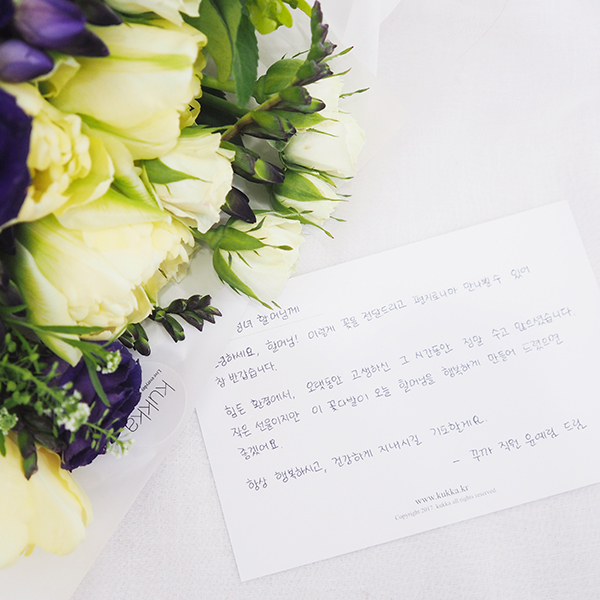 녀 할머님께
녕하세요, 할머님! 이렇게 꽃을 전달드리고 편지로나마 만나뵐 수 있어
참 반갑습니다.
힘든 환경에서, 오랫동안 고생하신 그 시간동안 정말 수고 많으셨습니다.
작은 선물이지만 이 꽃다발이 오늘 할머님을 행복하게 만들어 드렸으면
좋겠어요.
항상 행복하시고, 건강하게 지내시길 기도할게요.
- 꾸까 직원 윤예림 드림.
www.kukka.kr
Copyright 2017. kukka all rights reserved.
kukka